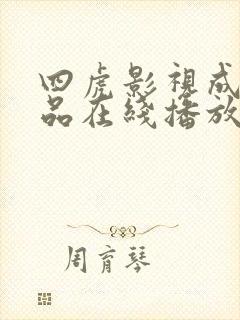 四虎影視成
品在綫播放
周育琴